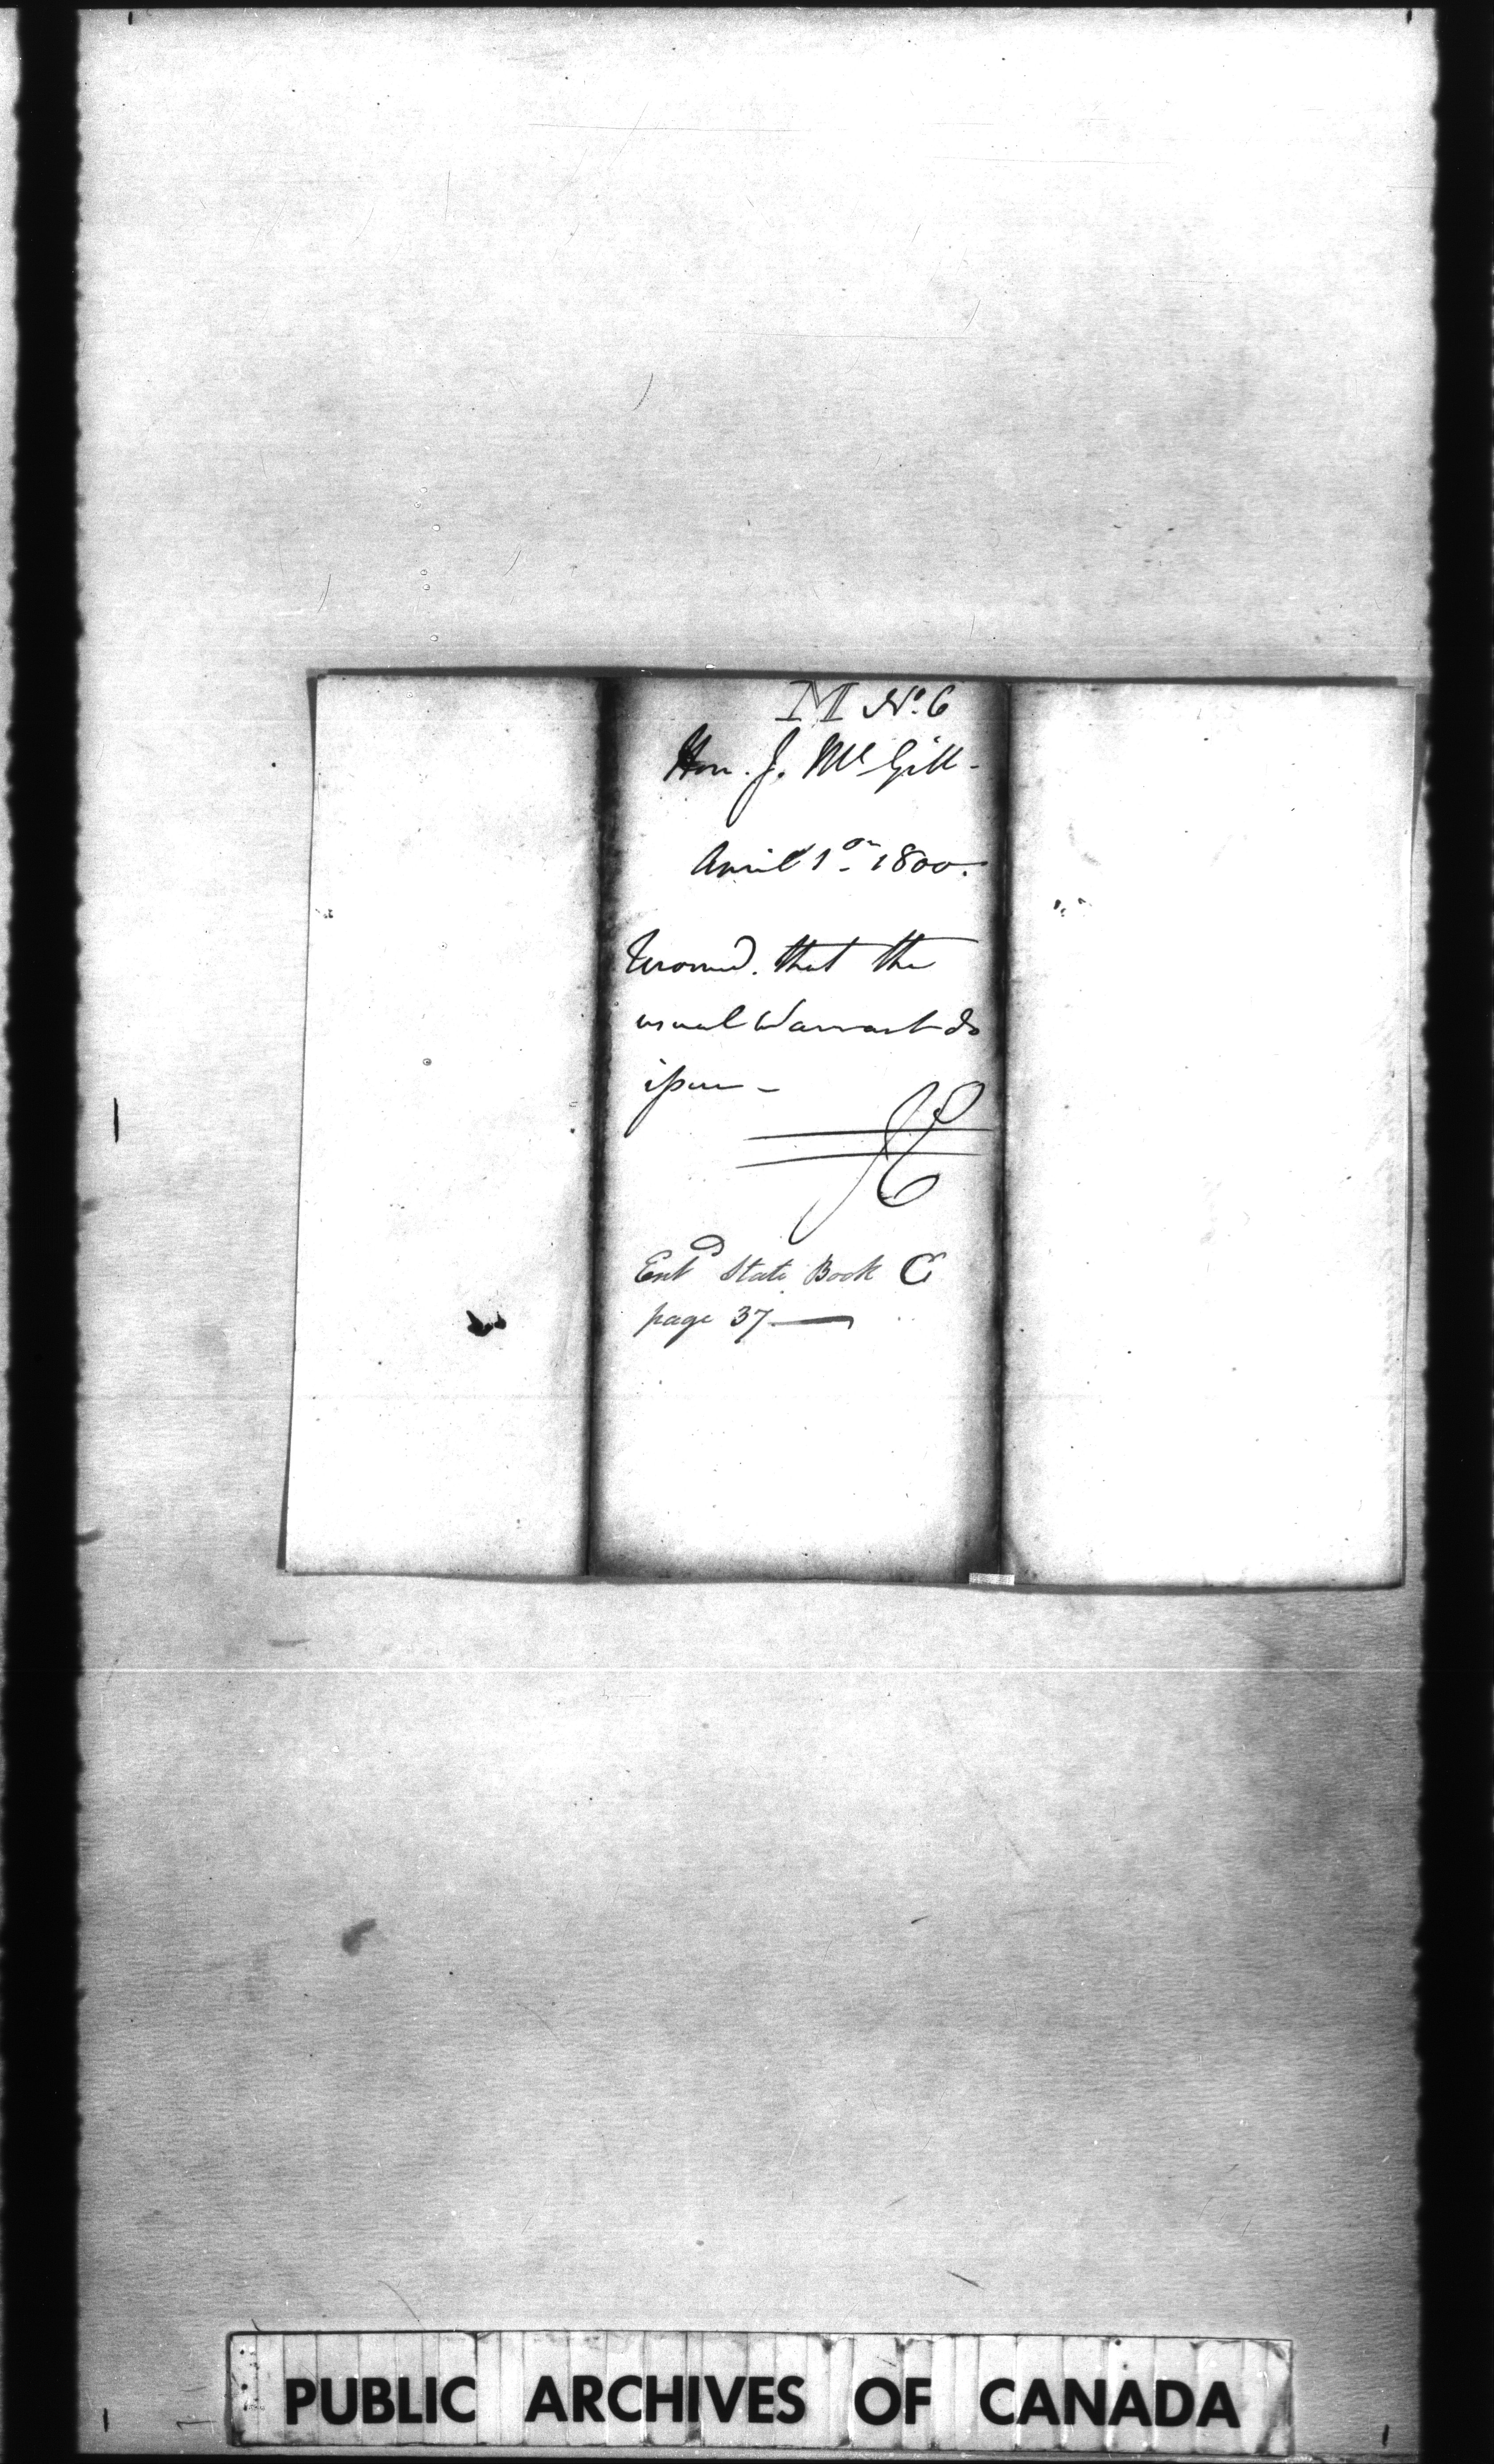 M No. 6
Hon. J. McGill -
April 1st 1800.
that the
usual Warrant do
issue -
JE
Entd State Book C
page 37
PUBLIC ARCHIVES OF CANADA